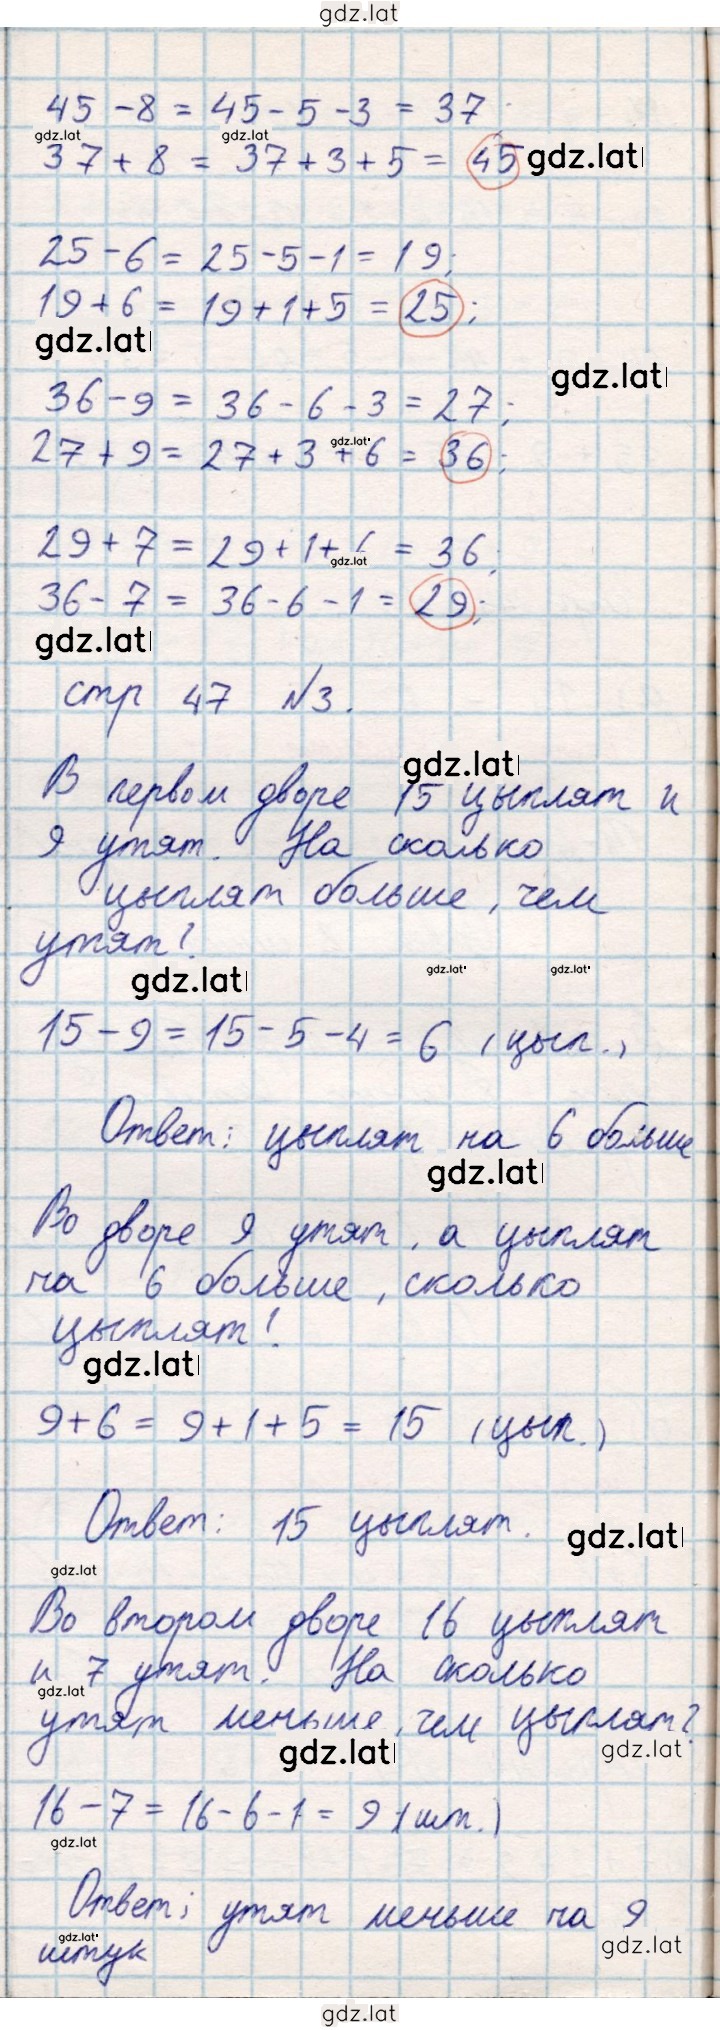 gdz.lat
45 - 8 = 45 - 5 - 3 = 37;
gdz.lat gdz.lat
37 + 8 = 37 + 3 + 5 = 45 gdz.lat
25 - 6 = 25 - 5 - 1 = 19;
19 + 6 = 19 + 1 + 5 = 25;
gdz.lat
gdz.lat
36 - 9 = 36 - 6 - 3 = 27;
gdz.lat
27 + 9 = 27 + 3 + 6 = 36;
29 + 7 = 29 + 1 + 6 = 36;
gdz.lat
36 - 7 = 36 - 6 - 1 = 29;
gdz.lat
стр 47 №3.
gdz.lat
В первом дворе 15 цыплят и
9 утят. На сколько
цыплят больше, чем
утят?
gdz.lat gdz.lat gdz.lat
15 - 9 = 15 - 5 - 4 = 6 (цып.)
Ответ: цыплят на 6 больше
gdz.lat
Во дворе 9 утят, а цыплят
на 6 больше, сколько
цыплят?
gdz.lat
9 + 6 = 9 + 1 + 5 = 15 (цып.)
Ответ: 15 цыплят.
gdz.lat
gdz.lat
Во втором дворе 16 цыплят
и 7 утят. На сколько
gdz.lat
утят меньше, чем цыплят?
gdz.lat gdz.lat
16 - 7 = 16 - 6 - 1 = 9 (шт.)
gdz.lat
Ответ: утят меньше на 9
gdz.lat gdz.lat
штук
gdz.lat